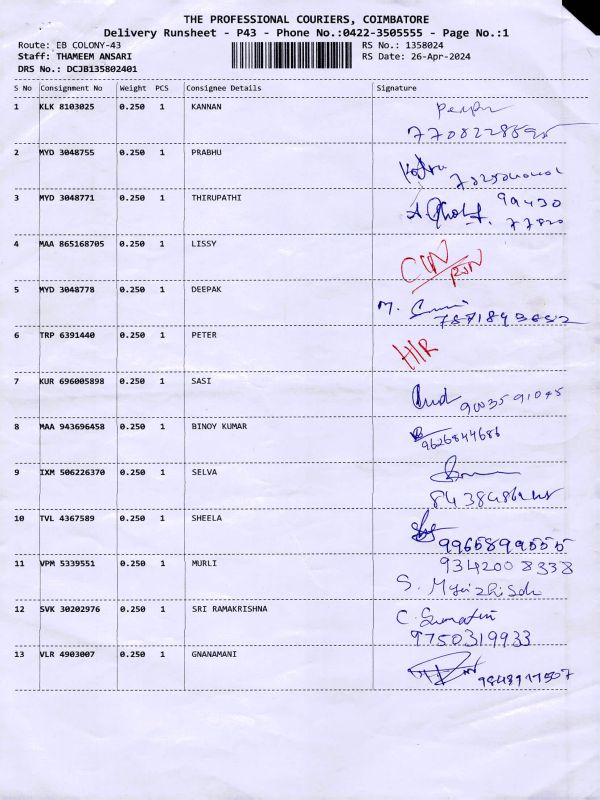 THE PROFESSIONAL COURIERS, COIMBATORE
Delivery Runsheet - P43 - Phone No.:0422-3505555 - Page No.:1
Route: EB COLONY-43 RS No.: 1358024
Staff: THAMEEM ANSARI RS Date: 26-Apr-2024
DRS No.: DCJB135802401
S No Consignment No Weight PCS Consignee Details Signature
1 KLK 8103025 0.250 1 KANNAN
2 MYD 3048755 0.250 1 PRABHU
3 MYD 3048771 0.250 1 THIRUPATHI 99430
77820
4 MAA 865168705 0.250 1 LISSY
5 MYD 3048778 0.250 1 DEEPAK
6 TRP 6391440 0.250 1 PETER
7 KUR 696005898 0.250 1 SASI
8 MAA 943696458 0.250 1 BINOY KUMAR
9626844686
9 IXM 506226370 0.250 1 SELVA
10 TVL 4367589 0.250 1 SHEELA
9965899555
11 VPM 5339551 0.250 1 MURLI 9342008338
12 SVK 30202976 0.250 1 SRI RAMAKRISHNA
9750319933
13 VLR 4903007 0.250 1 GNANAMANI